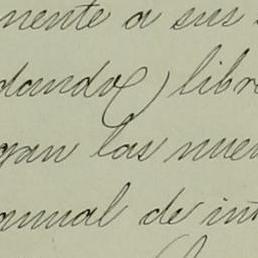 mente a sus
dando) libre
gan las nuev
anual de in